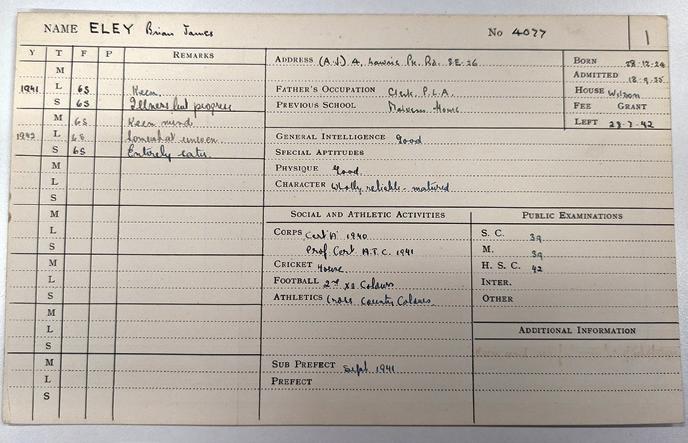 NAME ELEY Brian James No 4077 1
Y T F P REMARKS
M
1941 L 6S Keen.
S 6S Illness but progress
M 6S Keen mind
1942 L 6S Somewhat uneven.
S 6S Entirely satis.
M
L
S
M
L
S
M
L
S
M
L
S
ADDRESS (A.J) 4, Lawrie Pk. Rd. S.E.26
FATHER'S OCCUPATION Clerk. P.L.A.
PREVIOUS SCHOOL Malvern House
BORN 28.12.24
ADMITTED 18.9.35
HOUSE Wilson
FEE GRANT
LEFT 28.7.42
GENERAL INTELLIGENCE Good
SPECIAL APTITUDES
PHYSIQUE Good.
CHARACTER Wholly reliable - matured
SOCIAL AND ATHLETIC ACTIVITIES
CORPS Cert 'A' 1940
Prof Cert A.T.C. 1941
CRICKET House
FOOTBALL 2nd XI Colours
ATHLETICS Cross County Colours.
SUB PREFECT Sept 1941
PREFECT
PUBLIC EXAMINATIONS
S. C. 39
M. 39
H. S. C. 42
INTER.
OTHER
ADDITIONAL INFORMATION